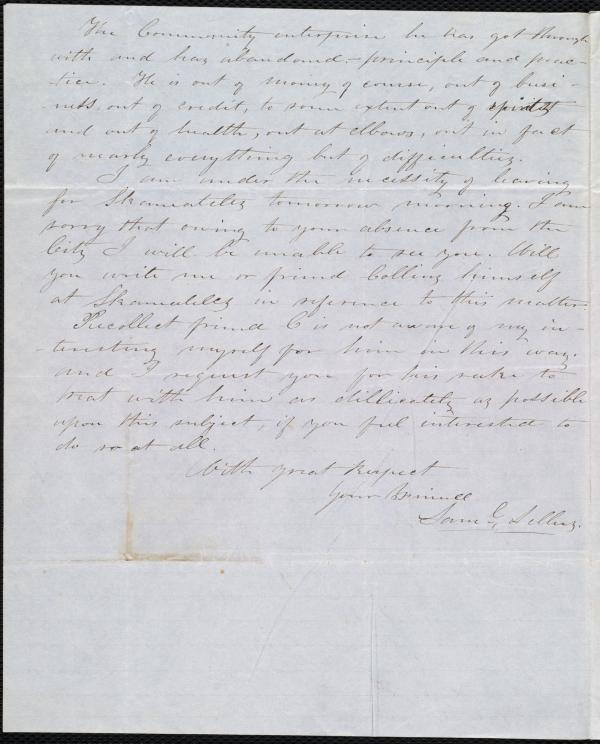 The Community enterprise he has got through
with and has abandoned - principle and prac-
-tice. He is out of money of course, out of busi-
ness, out of credit, to some extent out of spirits
and out of health, out at elbows, out in fact
of nearly everything but of difficulties.
I am under the necessity of leaving
for Skaneateles tomorrow morning. I am
sorry that owing to your absence from the
City I will be unable to see you. Will
you write me or friend Collins himself
at Skaneateles in reference to this matter.
Recollect friend C is not aware of my in-
-teresting myself for him in this way.
and I request you for his sake to
treat with him as dillicately as possible
upon this subject, if you feel interested to
do so at all.
With great Respect
Your Friend
Sam G, Sellers.